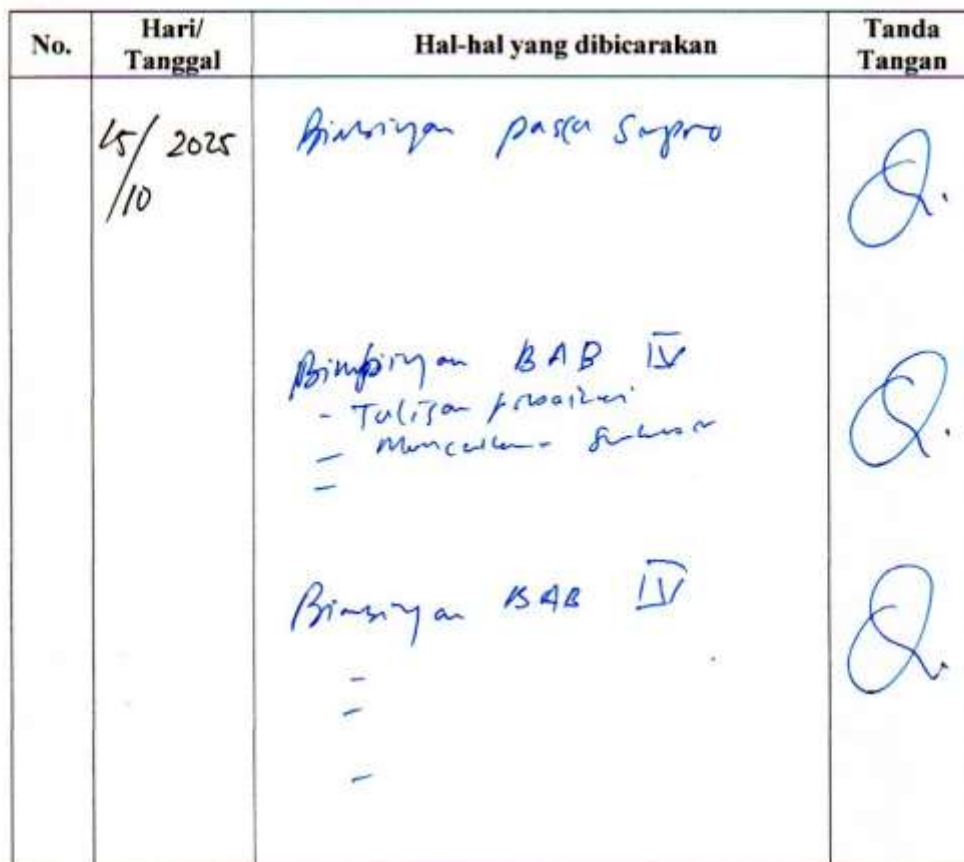 No.
Hari/
Tanggal
Hal-hal yang dibicarakan
Tanda
Tangan
15/ 2025
/10
Bimbingan pasca Sempro
Bimbingan BAB IV
- Tulisan perbaiki
- Mencantumkan
-
Bimbingan BAB IV
-
-
-